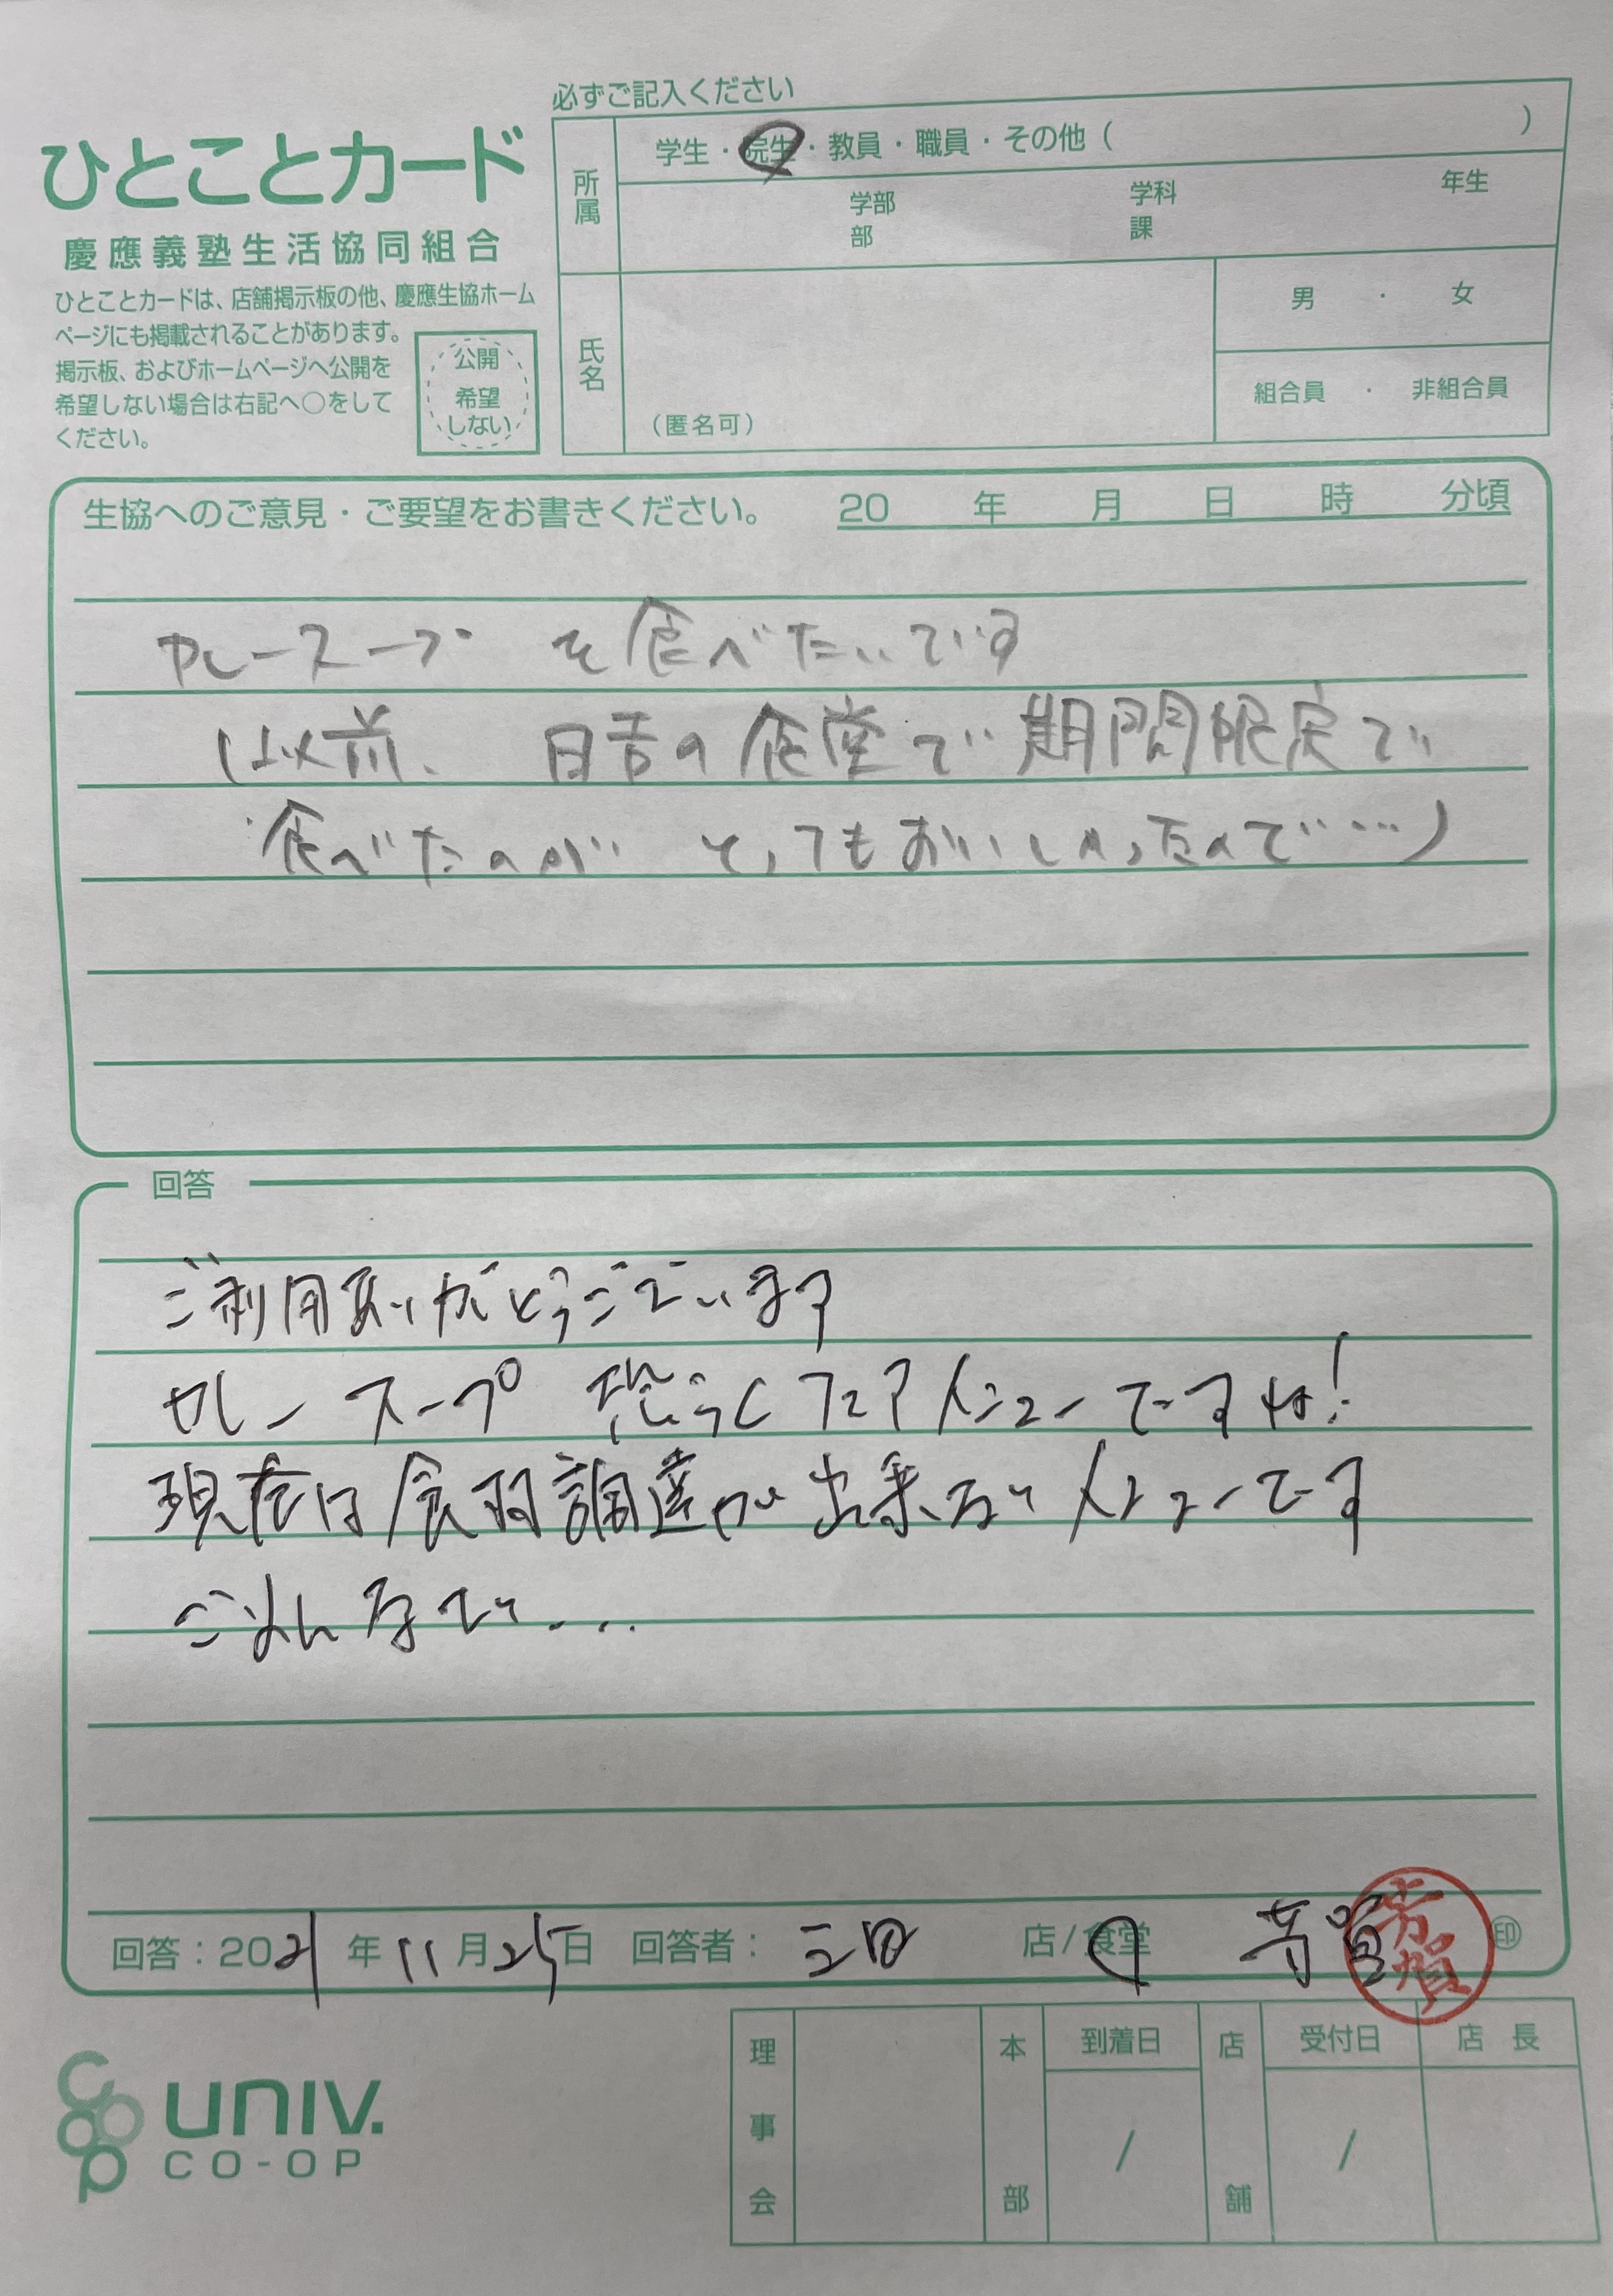 必ずご記入ください
ひとことカード
慶應義塾生活協同組合
ひとことカードは、店舗掲示板の他、慶應生協ホーム
ページにも掲載されることがあります。
掲示板、およびホームページへ公開を
希望しない場合は右記へ○をして
ください。
公開
希望
しない
所属
学生・院生・教員・職員・その他（　）
学部 学科 年生
部 課
氏名
（匿名可）
男 ・ 女
組合員 ・ 非組合員
生協へのご意見・ご要望をお書きください。 20 年 月 日 時 分頃
カレースープ を食べたいです
(以前、 日吉の食堂で期間限定で
食べたのが とってもおいしかったので…)
回答
ご利用ありがとうございます
カレースープ 恐らくフェアメニューですね!
現在は食材調達が出来ないメニューです
ごめんなさい...
回答：2021年11月25日 回答者： 三田 店/食堂 芳賀 芳賀 印
理事会
本部
到着日
/
店舗
受付日
/
店長
coop
univ.
CO-OP